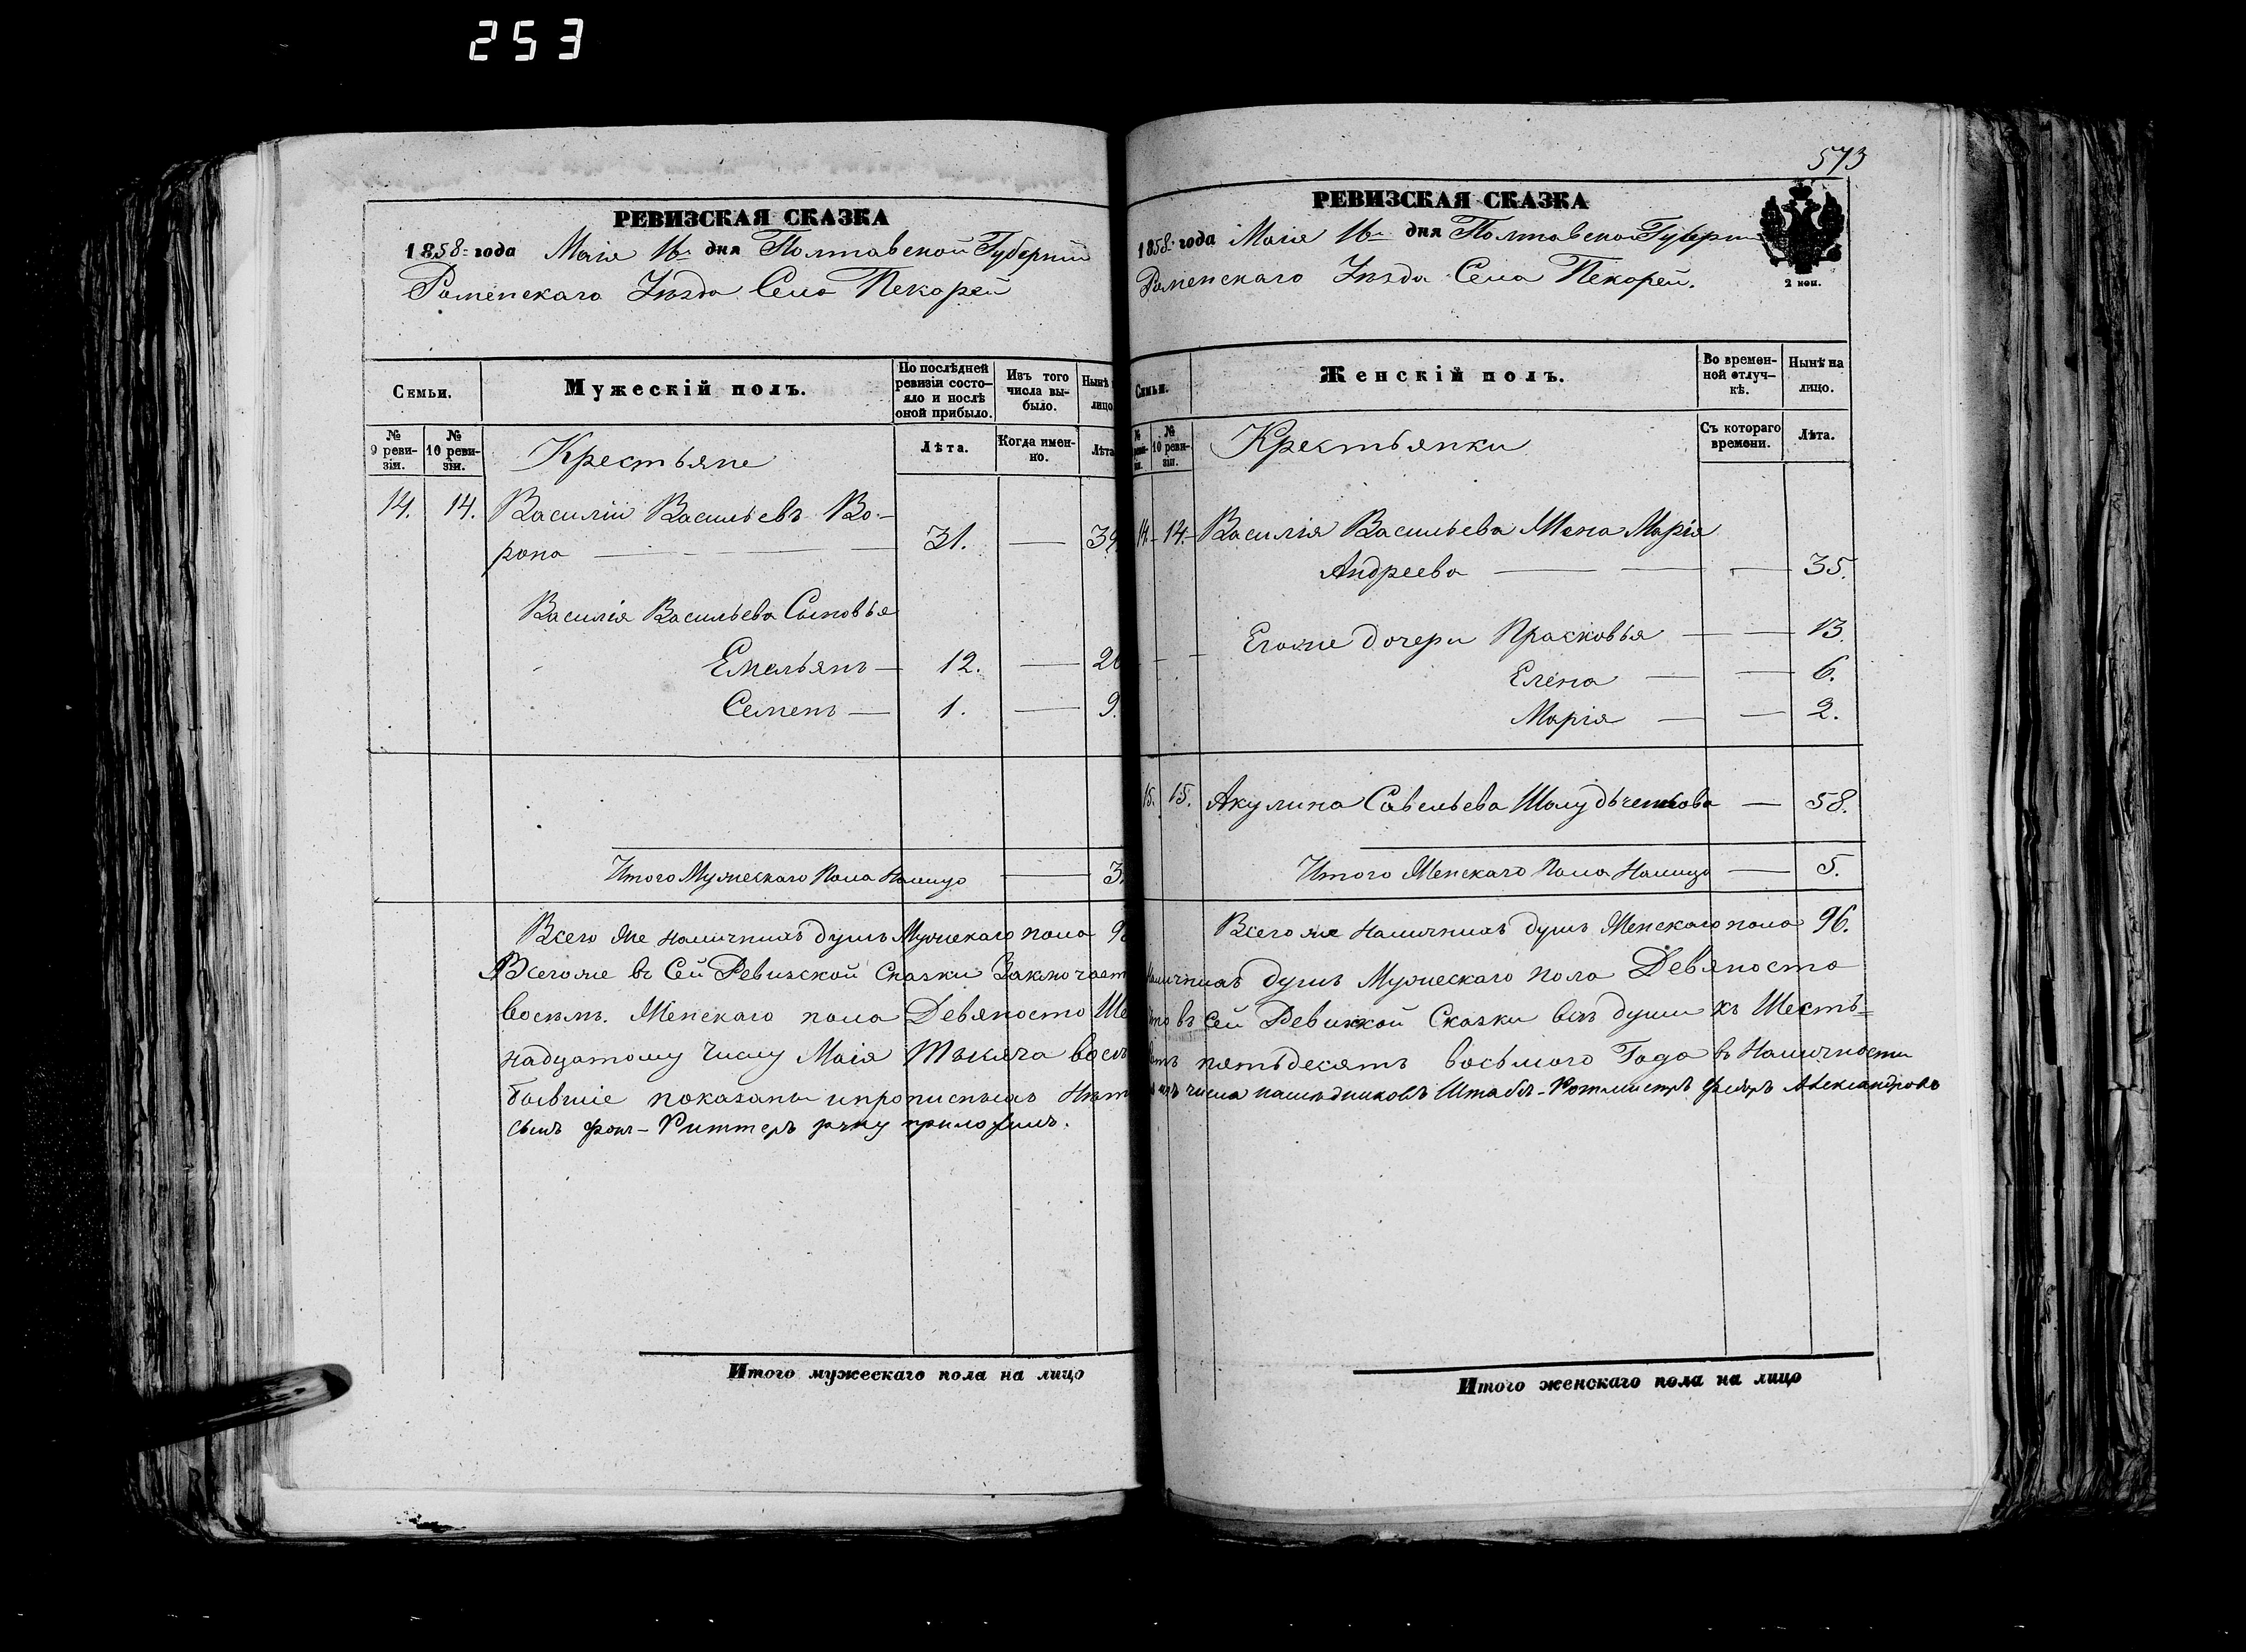 253
РЕВИЗСКАЯ СКАЗКА
1858 года Маія 16 дня Полтавской Губерніи
Роменскаго Уѣзда Села Пекарей
Семьи.
Мужескій полъ.
По послѣдней ревизіи состояло и послѣ оной прибыло.
Изъ того числа выбыло.
Нынѣ
лицо
№ 9 ревизіи.
№ 10 ревизіи.
Крестьяне
Лѣта.
Когда именно.
Лѣта
14. 14. Василій Васильевъ Во-
рона 31. 39
Василія Васильева Сыновья
Емельянъ 12. 20
Семенъ 1. 9.
Итого Мужескаго Пола Налицо 3.
Всего же наличныхъ душъ Мужескаго пола
Всего же въ Сей Ревизской Сказки Заключает
восемь. Женскаго пола Девяносто Ше
надцатому Числу Маія Тысяча восем
бывшіе показаны и прописныхъ Нѣт
сынъ фон-Риттеръ руку приложилъ.
Итого мужескаго пола на лицо
573
РЕВИЗСКАЯ СКАЗКА
1858 года Маія 16 дня Полтавской Губерн
Роменскаго Уѣзда Села Пекарей.
2 коп.
Семьи.
Женскій полъ.
Во временной отлучкѣ.
Нынѣ на лицо.
№
№ 10 ревизіи.
Крестьянки
Съ котораго времени.
Лѣта.
14. 14. Василія Васильева Жена Марія
Андреева 35.
Егоже дочери Прасковья 13.
Елена 6.
Марія 2.
15. 15. Акулина Савельева 58.
Итого Женскаго Пола Налицо 5.
Всего же наличныхъ душъ Женскаго пола 96.
наличныхъ душъ Мужескаго пола Девяносто
въ Сей Ревизской Сказки всѣ души къ Шесть=
пятьдесятъ восьмого Года въ Наличности
изъ числа наслѣдниковъ Штабсъ-Ротмистръ Федоръ Александровъ
Итого женскаго пола на лицо